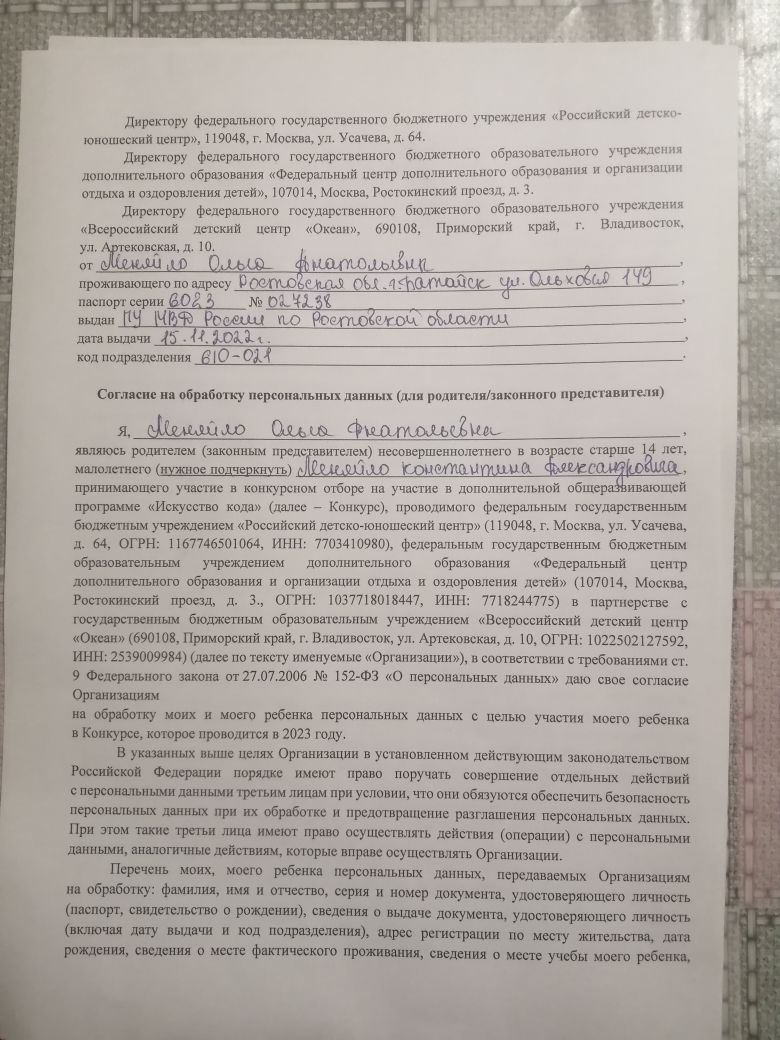 Директору федерального государственного бюджетного учреждения «Российский детско-
юношеский центр», 119048, г. Москва, ул. Усачева, д. 64.
Директору федерального государственного бюджетного образовательного учреждения
дополнительного образования «Федеральный центр дополнительного образования и организации
отдыха и оздоровления детей», 107014, Москва, Ростокинский проезд, д. 3.
Директору федерального государственного бюджетного образовательного учреждения
«Всероссийский детский центр «Океан», 690108, Приморский край, г. Владивосток,
ул. Артековская, д. 10.
от Меняйло Ольга Анатольевна,
проживающего по адресу Ростовская обл. г. Батайск ул. Ольховая 149,
паспорт серии 6023 № 027238,
выдан ГУ МВД России по Ростовской области,
дата выдачи 15.11.2022 г.,
код подразделения 610-021.
Согласие на обработку персональных данных (для родителя/законного представителя)
Я, Меняйло Ольга Анатольевна,
являюсь родителем (законным представителем) несовершеннолетнего в возрасте старше 14 лет,
малолетнего (нужное подчеркнуть) Меняйло Константина Александровича,
принимающего участие в конкурсном отборе на участие в дополнительной общеразвивающей
программе «Искусство кода» (далее – Конкурс), проводимого федеральным государственным
бюджетным учреждением «Российский детско-юношеский центр» (119048, г. Москва, ул. Усачева,
д. 64, ОГРН: 1167746501064, ИНН: 7703410980), федеральным государственным бюджетным
образовательным учреждением дополнительного образования «Федеральный центр
дополнительного образования и организации отдыха и оздоровления детей» (107014, Москва,
Ростокинский проезд, д. 3., ОГРН: 1037718018447, ИНН: 7718244775) в партнерстве с
государственным бюджетным образовательным учреждением «Всероссийский детский центр
«Океан» (690108, Приморский край, г. Владивосток, ул. Артековская, д. 10, ОГРН: 1022502127592,
ИНН: 2539009984) (далее по тексту именуемые «Организации»), в соответствии с требованиями ст.
9 Федерального закона от 27.07.2006 № 152-ФЗ «О персональных данных» даю свое согласие
Организациям
на обработку моих и моего ребенка персональных данных с целью участия моего ребенка
в Конкурсе, которое проводится в 2023 году.
В указанных выше целях Организации в установленном действующим законодательством
Российской Федерации порядке имеют право поручать совершение отдельных действий
с персональными данными третьим лицам при условии, что они обязуются обеспечить безопасность
персональных данных при их обработке и предотвращение разглашения персональных данных.
При этом такие третьи лица имеют право осуществлять действия (операции) с персональными
данными, аналогичные действиям, которые вправе осуществлять Организации.
Перечень моих, моего ребенка персональных данных, передаваемых Организациям
на обработку: фамилия, имя и отчество, серия и номер документа, удостоверяющего личность
(паспорт, свидетельство о рождении), сведения о выдаче документа, удостоверяющего личность
(включая дату выдачи и код подразделения), адрес регистрации по месту жительства, дата
рождения, сведения о месте фактического проживания, сведения о месте учебы моего ребенка,